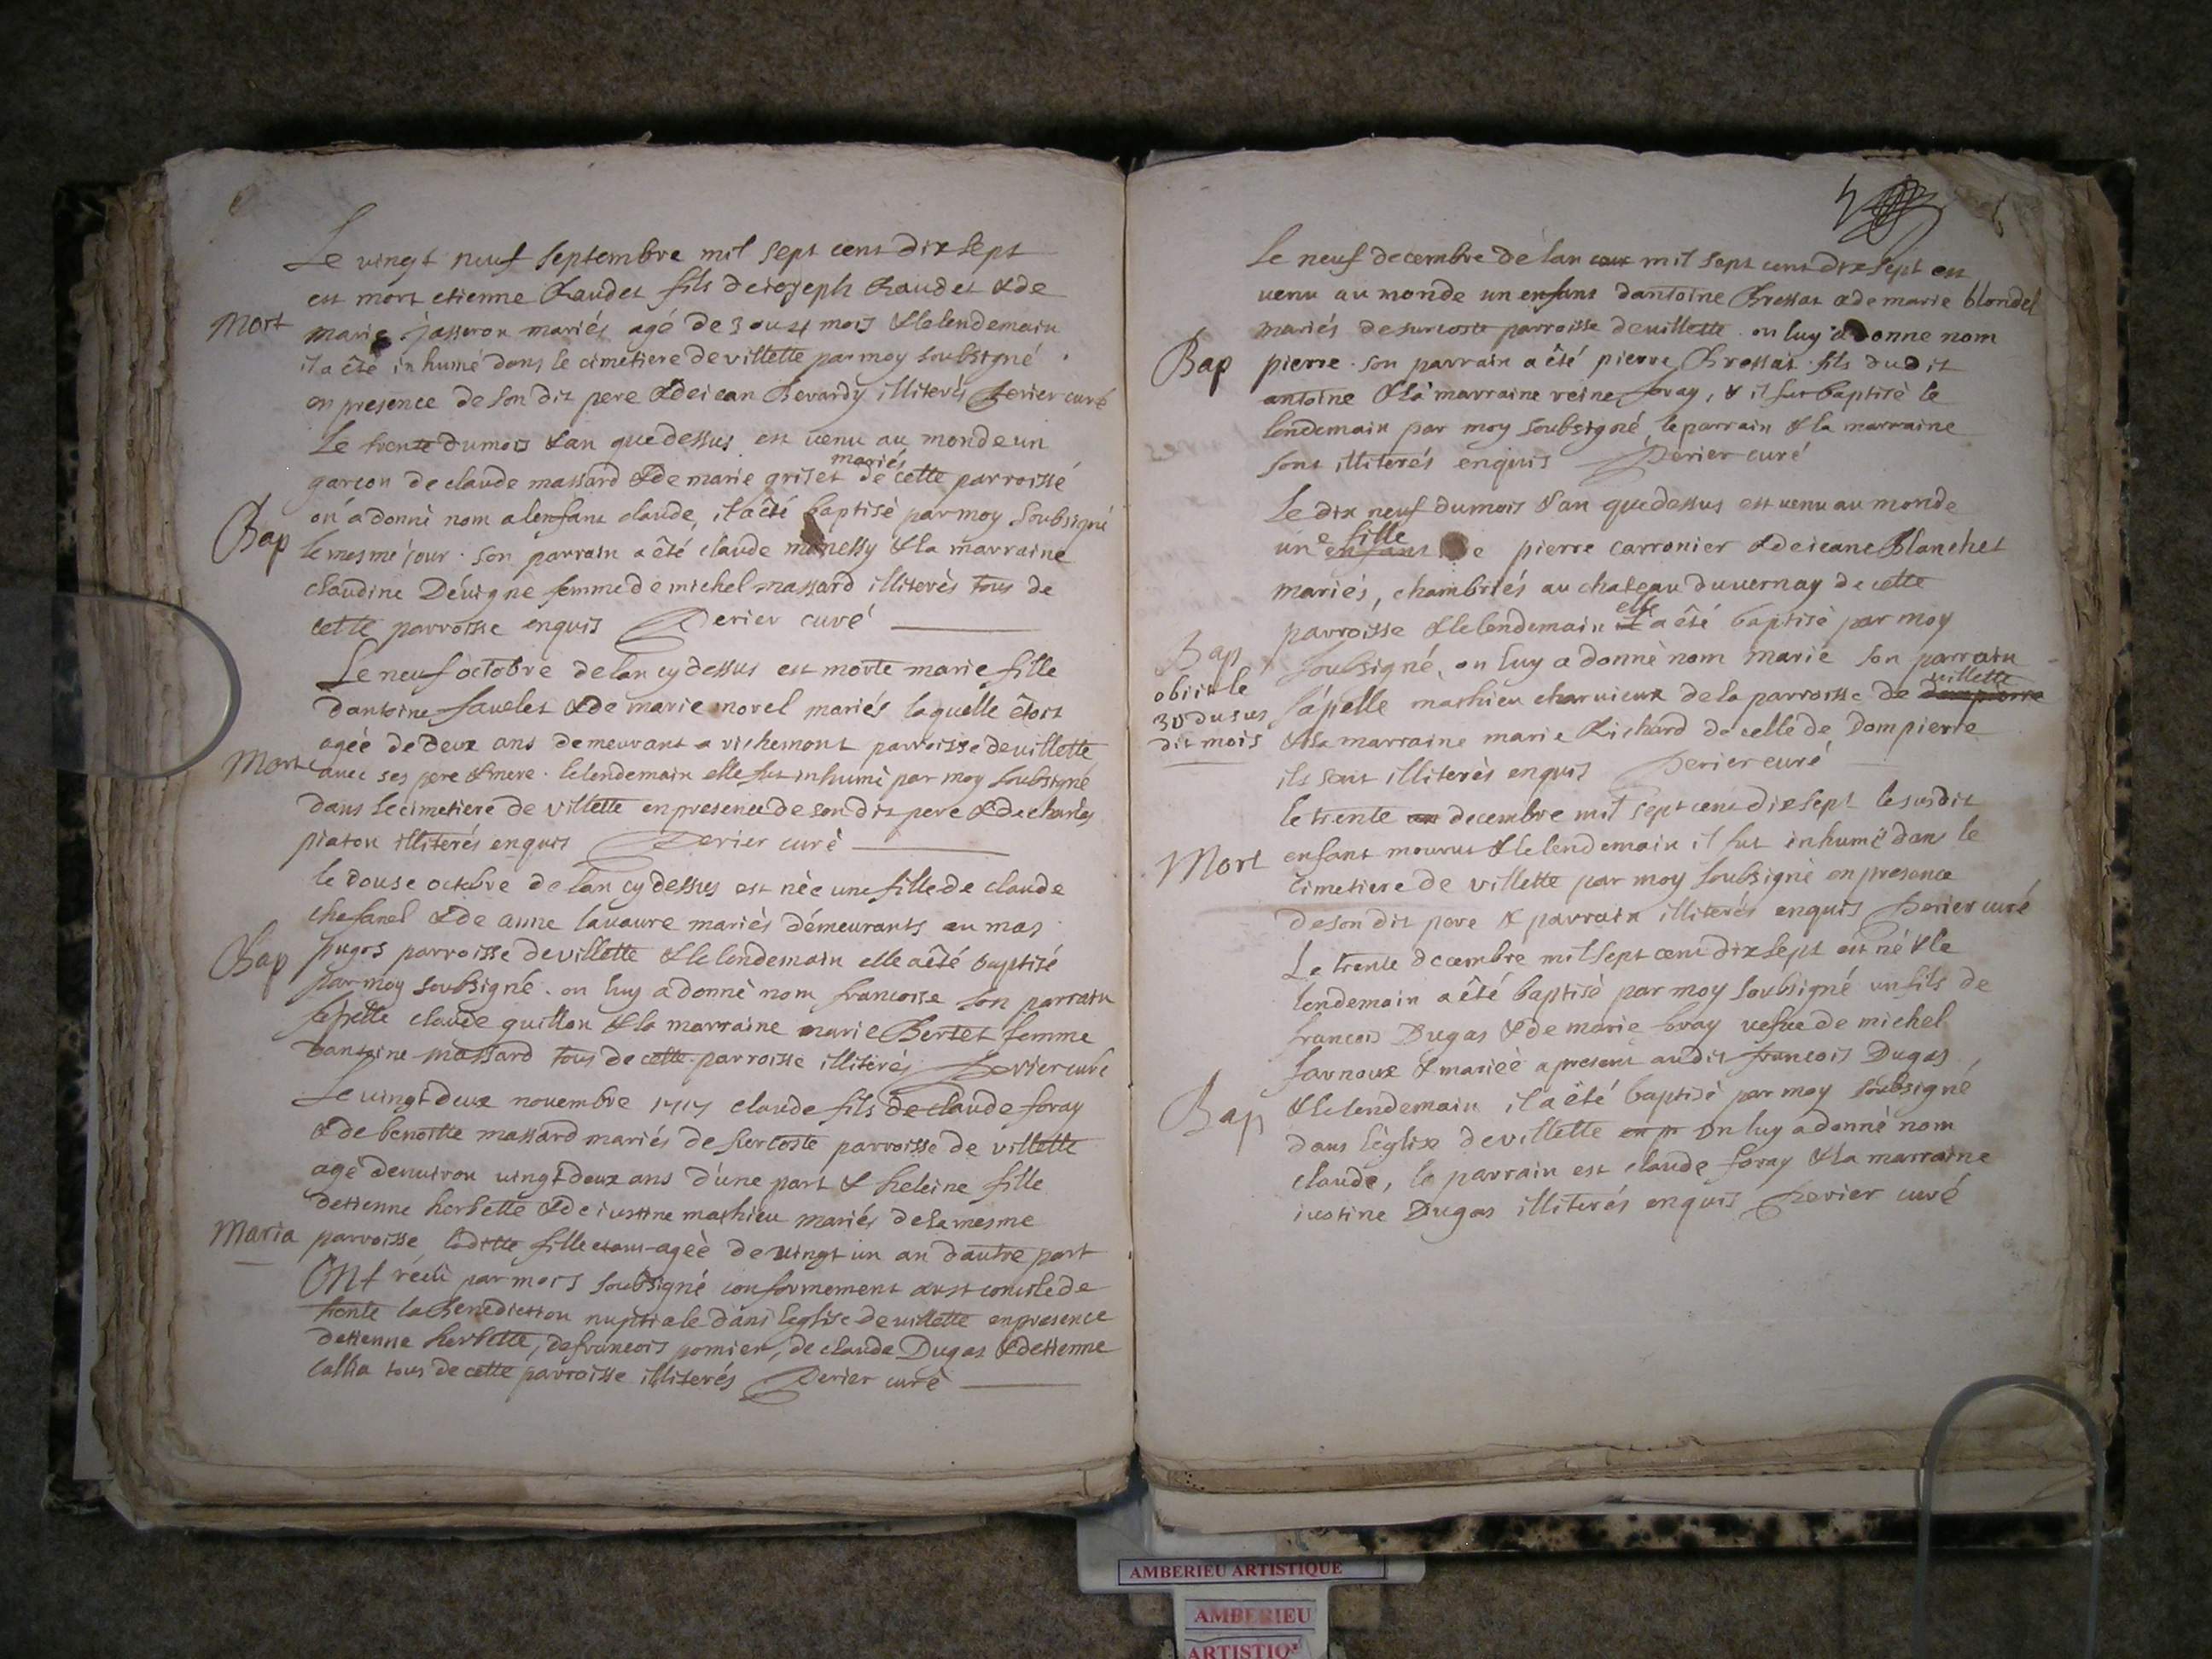 Le vingt neuf septembre mil sept cens dix sept
est mort etienne Raudet fils de ioseph Raudet & de
Mort
marie jasseron mariés agé de 3 ou 4 mois & le lendemain
il a êté inhumé dans le cimetiere de villette par moy soubsigné
en presence de son dit pere & de iean Bevardy illiterés Perier curé
Le trente du mois & an que dessus est venu au monde un
mariés
garcon de claude massard & de marie griset de cette parroisse
on a donné nom a lenfant claude, il a êté baptisé par moy soubsigné
Bap
le mesme jour. son parrain a êté claude & la marraine
claudine Dévigne femme de michel massard illiterés tous de
cette parroisse enquis Perier curé
Le neuf octobre de lan cy dessus est morte marie fille
dantoine favelet & de marie morel mariés laquelle êtoit
agée de deux ans demeurant a richemont parroisse de villette
Mort
avec ses pere & mere. le lendemain elle fut inhumé par moy soubsigné
dans le cimetiere de villette en presence de son dit pere & de charles
piaton illiterés enquis Perier curé
le douse octobre de lan cy dessus est née une fille de claude
chafanel & de anne lavaure mariés démeurants au mas
Bap
pugos parroisse de villette & le lendemain elle a êté baptisé
par moy soubsigné. on luy a donné nom francoise son parrain
sapelle claude guillon & la marraine marie Bertet femme
dantoine massard tous de cette parroisse illiterés Perier curé
Le vingt deux novembre 1717 claude fils de claude foray
& de benoitte massard mariés de surcoste parroisse de villette
agé denviron vingt deux ans d'une part & heleine fille
detienne herbette & de iustine mathieu mariés de la mesme
Maria
parroisse, laditte fille etant agée de vingt un an dautre part
Ont récu par mois soubsigné conformement au st concile de
trente la Benediction nuptiale dans leglise de villette en presence
detienne herbette, de francois pomier, de claude Dugas & detienne
callia tous de cette parroisse illiterés Perier curé
Le neuf decembre de lan mil sept cens dix sept est
venu au monde un enfant dantoine Brossat & de marie blondel
mariés de surcoste parroisse de villette on luy a donne nom
Bap
pierre. son parrain a êté pierre Brossat fils du dit
antoine & la marraine reine foray, & il fut baptisé le
lendemain par moy soubsigné, le parrain & la marraine
sont illiterés enquis Perier curé
Le dix neuf du mois & an que dessus est venu au monde
fille
une enfant de pierre carronier & de ieane Blanchet
mariés, chambriés au chateau du vernay de cette
elle
parroisse & le lendemain il a êté baptisé par moy
Bap
soubsigné, on luy a donné nom marie son parrain
obiit le
villette
30 du sus
s'apelle mathieu charvieux de la parroisse de dompierre
dit mois
& la marraine marie Richard de celle de Dompierre
ils sont illiterés enquis Perier curé
le trente decembre mil sept cens dix sept le susdit
Mort
enfant mourut & le lendemain il fut inhumé dans le
cimetiere de villette par moy soubsigné en presence
de son dit pere & parrain illiterés enquis Perier curé
Le trente decembre mil sept cens dix sept est né & le
lendemain a êté baptisé par moy soubsigné un fils de
francois Dugas & de marie foray vefve de michel
farnoux & mariée a present audit francois Dugas
Bap
& le lendemain il a êté baptisé par moy soubsigné
dans l'eglise de villette en pr on luy a donné nom
claude, le parrain est claude foray & la marraine
iustine Dugas illiterés enquis Perier curé
AMBERIEU ARTISTIQUE
AMBERIEU
ARTISTIQ